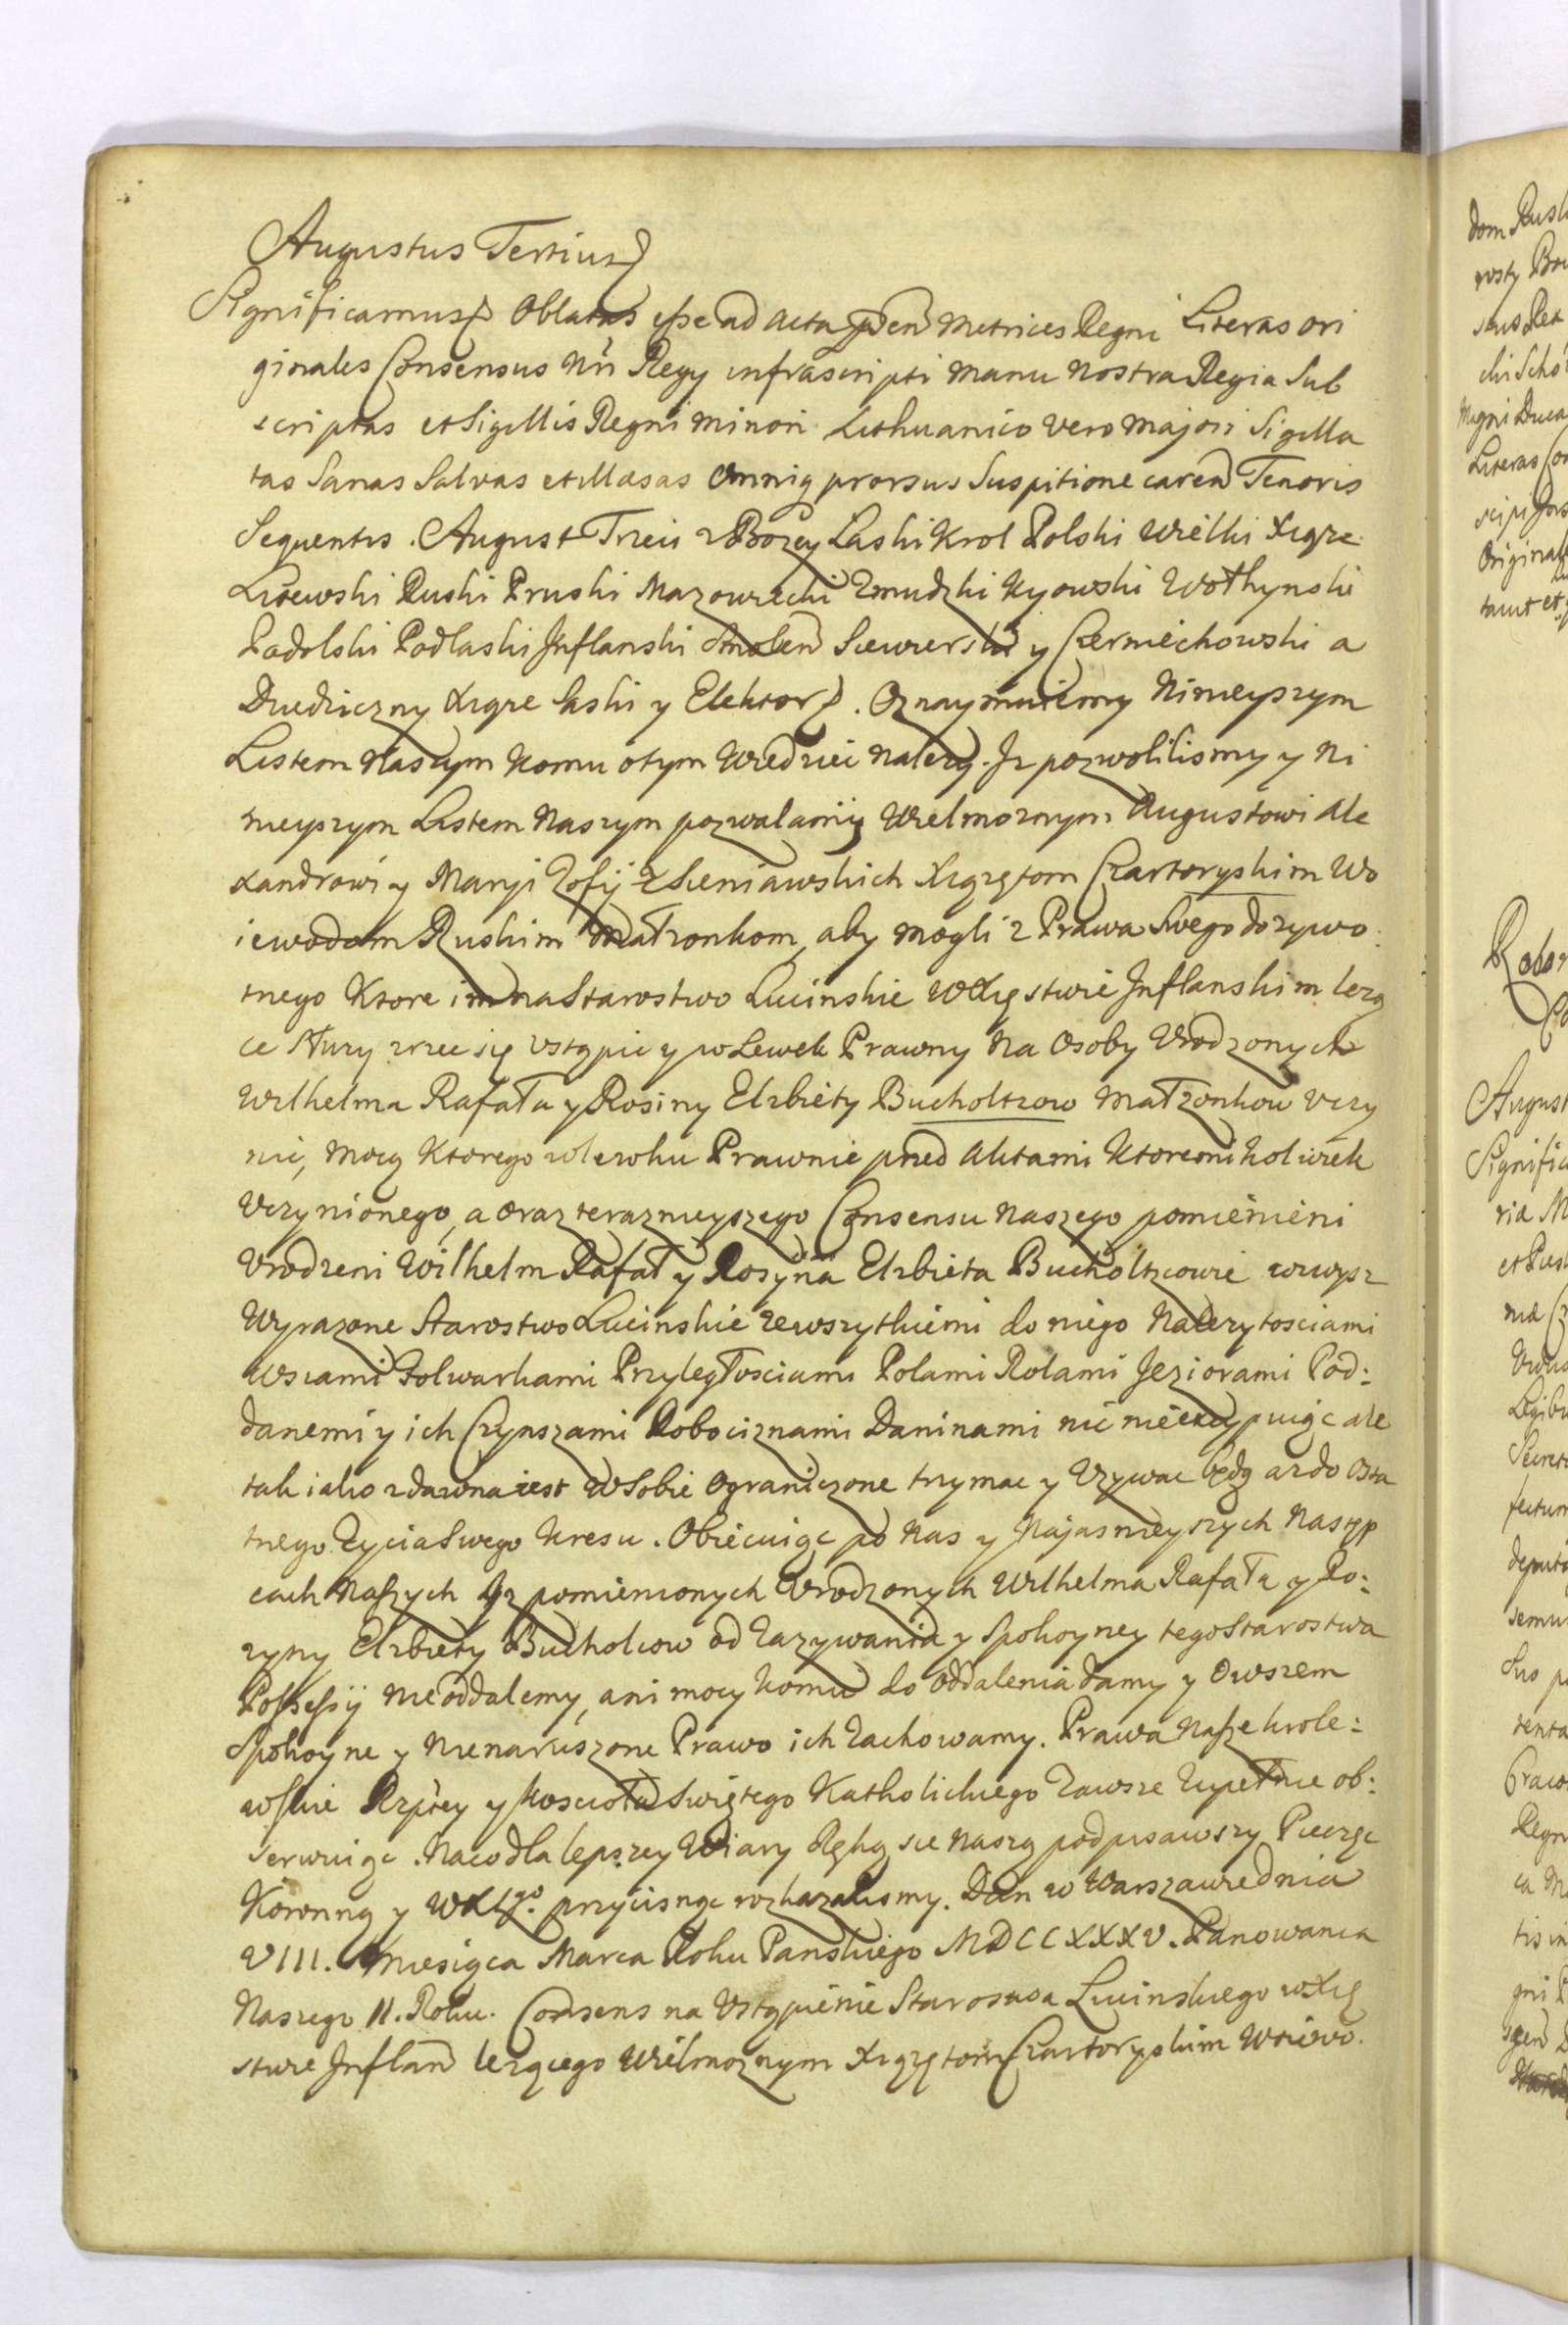 Augustus Tertius
Significamus Oblatas esse ad Acta pñ Metrices Regni Literas ori
ginales Consensus Nri Regy infrascripti Manu Nostra Regia Sub
scriptas et Sigillis Regni minori Lithuanico vero majori Sigilla
tas Sanas Salvas et illaesas Omniq prorsus Suspitione caren Tenoris
Sequentis. August Trzeci z Bozey Laski Krol Polski Wielki Xiąze
Litewski Ruski Pruski Mazowiecki Zmudzki Kyowski Wołhynski
Podolski Podlaski Inflanski Smolen Siewierski y Czerniechowski a
Dziedziczny Xiąze Saski y Elektor. Oznaymuiemy Ninieyszym
Listem Naszym Komu o tym Wiedzieć Nalezy. Iz pozwolilismy y Ni
nieyszym Listem Naszym pozwalamy Wielmoznym Augustowi Ale
xandrowi y Maryi Zofij z Sieniawskich Xiązętom Czartoryskim Wo
iewodom Ruskim Małzonkom, aby mogli z Prawa Swego dozywo:
tnego Ktore im na Starostwo Lucinskie W Xięstwie Inflanskim lezą
ce Słuzy zrzec się Ustąpic y w Lewek Prawny Na Osoby Urodzonych
Wilhelma Rafała y Rosiny Elzbiety Bucholtzow Małzonkow Uczy
nić, Mocą Ktorego wlewku Prawnie przed Aktami Ktoremikolwiek
Uczynionego, a oraz terazmieyszego Consensu Naszego pomienieni
Urodzeni Wilhelm Rafał y Rosyna Elzbieta Bucholtzowie wzwysz
Wyrazone Starostwo Lucinskie zewszytkiemi do niego Nalezytosciami
Wsiami Folwarkami Przyległosciami Polami Rolami Jeziorami Pod:
danemi y ich Czynszami Robociznami Daninami nic nieexcypuiąc ale
tak iako zdawna iest w Sobie Ograniczone trzymac y Uzywac będą az do Osta
tnego Zycia Swego Kresu. Obiecuiąc po Nas y Najasnieyszych Następ
cach Naszych Iz pomienionych Urodzonych Wilhelma Rafała y Ro:
zyny Elzbiety Bucholcow od Zazywania y Spokoyney tego Starostwa
Possessij Nieoddalemy, ani mocy Komu do Oddalenia damy y Owszem
Spokoyne y Nienaruszone Prawo ich Zachowamy. Prawa Nasze Krole:
wskie Rzptey y Koscioła Swiętego Katholickiego Zawsze Zupełnie ob:
serwuiąc. Naco dla lepszey Wiary Ręką sie Naszą podpisawszy Pieczęc
Koronną y WXLgo. przycisnąc rozkazalismy. Dan w Warszawie dnia
VIII. Miesiąca Marca Roku Panskiego MDCCXXXV. Panowania
Naszego II. Roku. Consens na Ustąpienie Starostwa Lucinskiego w Xię
stwie Inflan lezącego Wielmoznym Xiązętom Czartoryskim Woiewo.